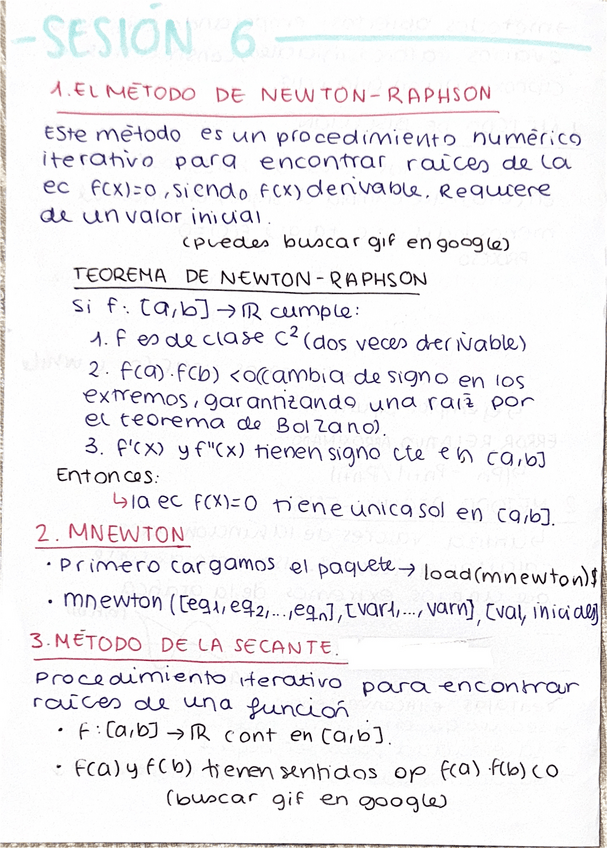 -SESIÓN 6
1. EL MÉTODO DE NEWTON-RAPHSON
Este método es un procedimiento numérico
iterativo para encontrar raíces de la
ec f(x)=0, siendo f(x) derivable. Requiere
de un valor inicial.
(puedes buscar gif en google)
TEOREMA DE NEWTON-RAPHSON
Si f: [a,b] → ℝ cumple:
1. f es de clase C² (dos veces derivable)
2. f(a)·f(b) <0 (cambia de signo en los
extremos, garantizando una raíz por
el teorema de Bolzano).
3. f'(x) y f''(x) tienen signo cte en [a,b]
Entonces:
↳ la ec f(x)=0 tiene única sol en [a,b].
2. MNEWTON
· Primero cargamos el paquete → load(mnewton)$
· mnewton ([eq1, eq2, ..., eqn], [var1, ..., varn], [val, iniciales]
3. MÉTODO DE LA SECANTE.
Procedimiento iterativo para encontrar
raíces de una función
· f: [a,b] → ℝ cont en [a,b].
· f(a) y f(b) tienen sentidos op f(a)·f(b)<0
(buscar gif en google)